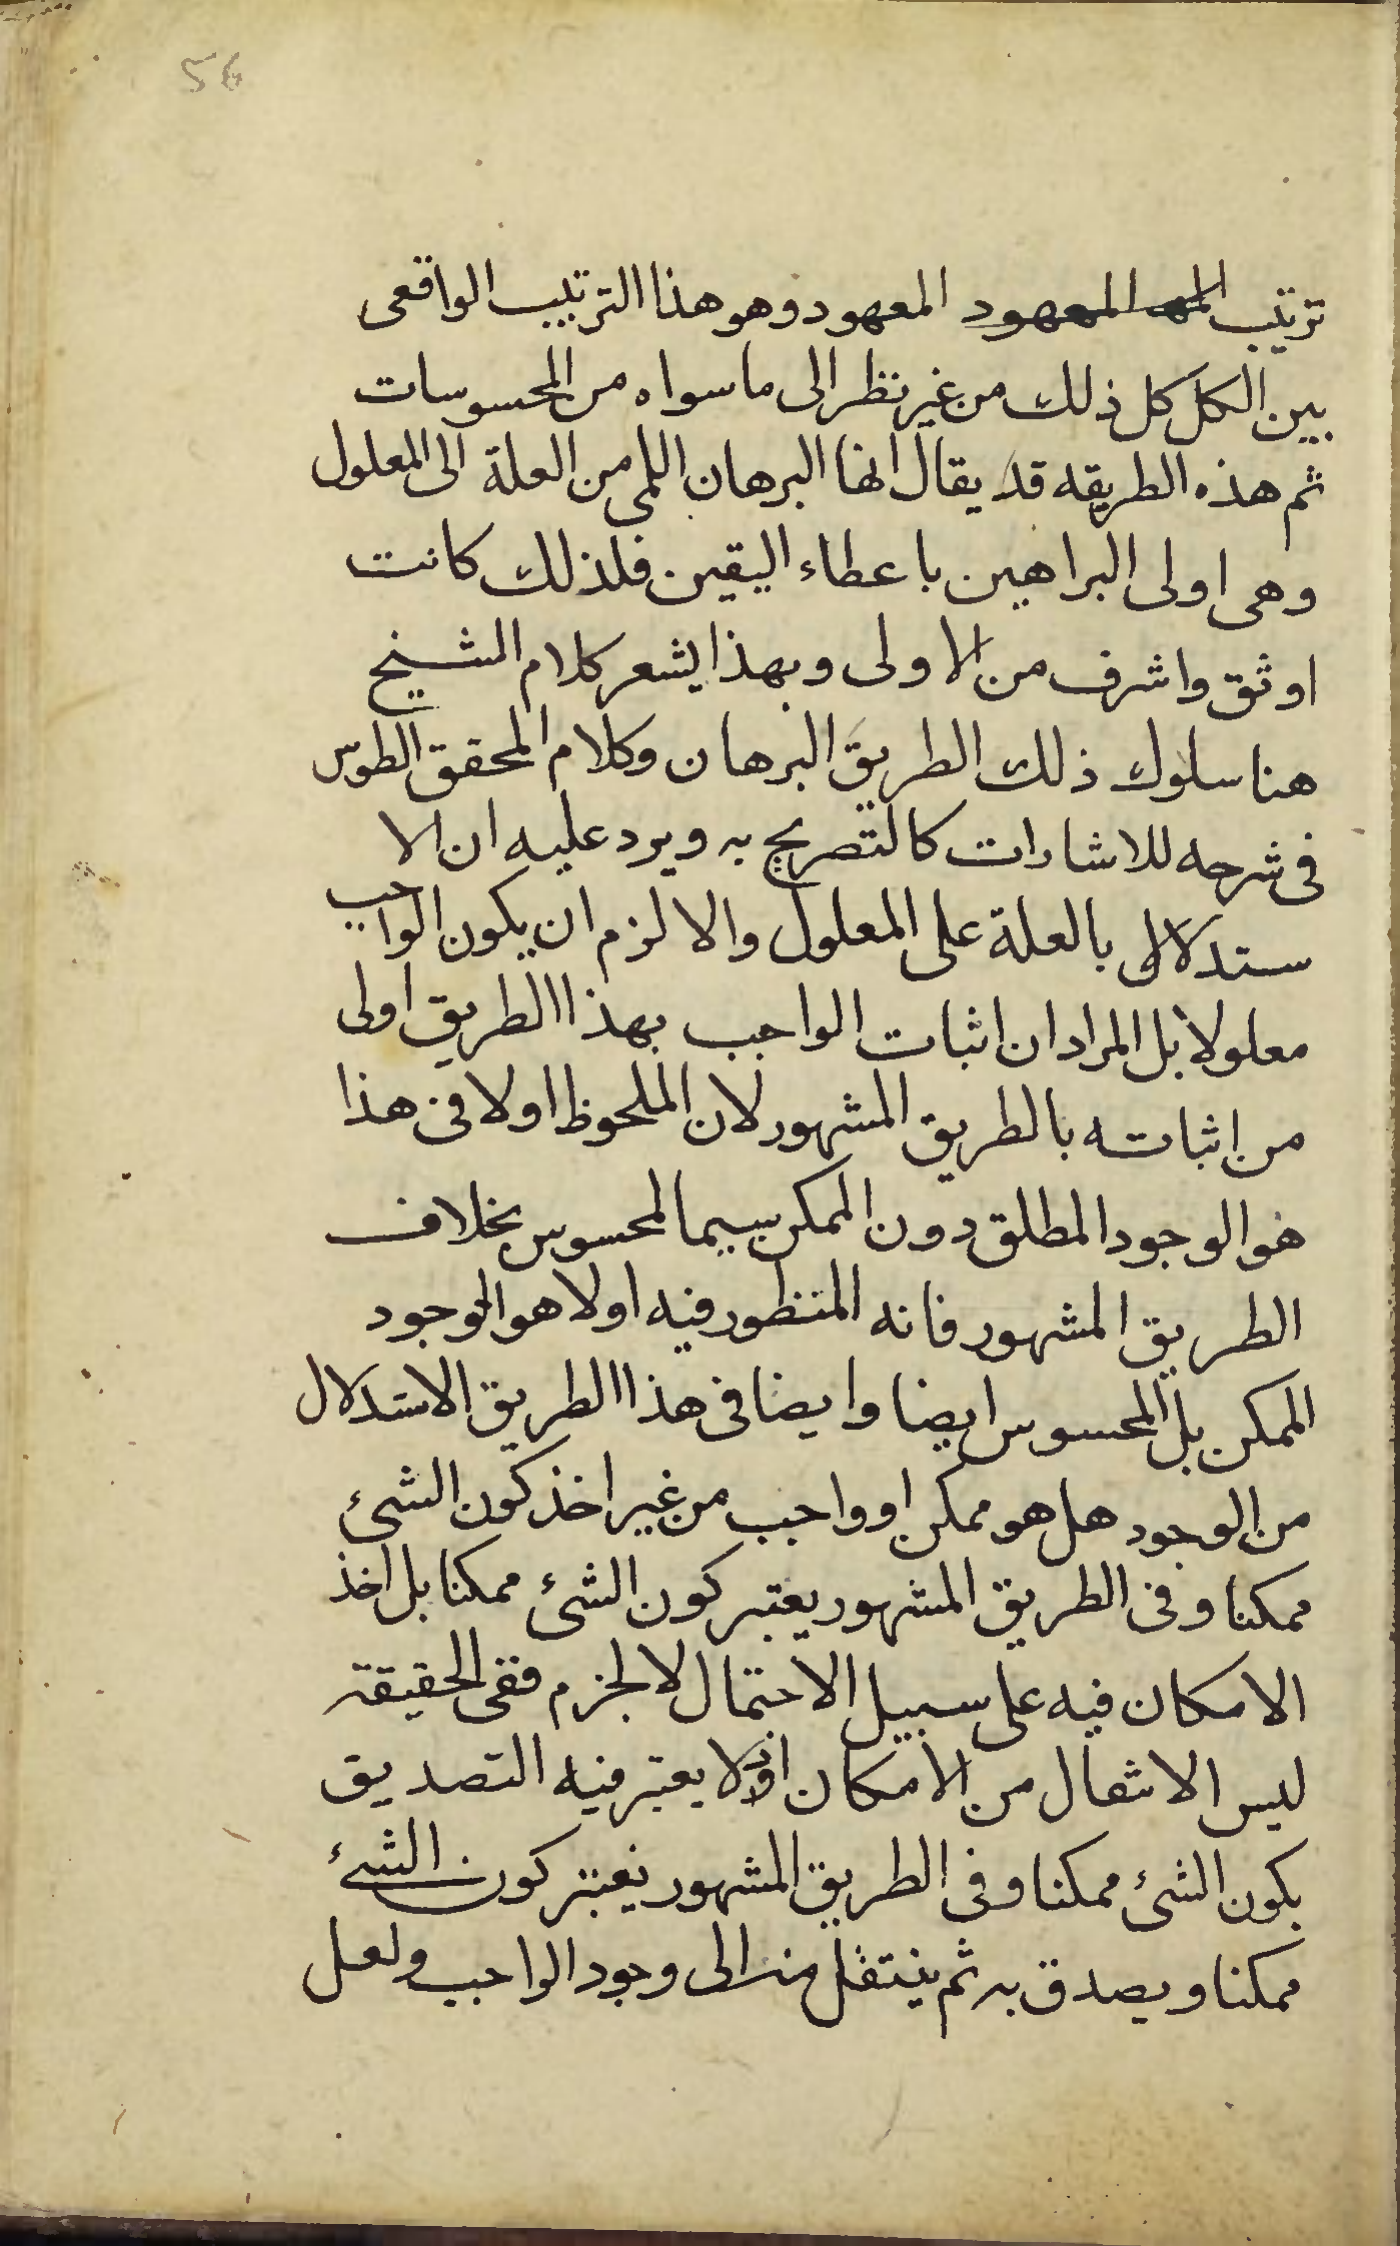 56
ترتيب المعهود المعهود وهو هذا الترتيب الواقعى
بين الكل كل ذلك من غير نظر الى ما سواه من المحسوسات
ثم هذه الطريقه قد يقال انها البرهان اللمى من العلة الى المعلول
وهى اولى البراهين باعطاء اليقين فلذلك كانت
اوثق واشرف من الاولى وبهذا يشعر كلام الشيخ
هنا سلوك ذلك الطريق البرهان وكلام المحقق الطوسى
فى شرحه للاشارات كالتصريح به ويرد عليه ان الا
ستدلال بالعلة على المعلول والا لزم ان يكون الواجب
معلولا بل المراد ان اثبات الواجب بهذا الطريق اولى
من اثباته بالطريق المشهور لان الملحوظ اولا فى هذا
هو الوجود المطلق دون الممكن سيما المحسوس بخلاف
الطريق المشهور فانه المنظور فيه اولا هو الوجود
الممكن بل المحسوس ايضا وايضا فى هذا الطريق الاستدلال
من الوجود هل هو ممكن او واجب من غير اخذ كون الشئ
ممكنا وفى الطريق المشهور يعتبر كون الشئ ممكنا بل اخذ
الامكان فيه على سبيل الاحتمال لا لجزم ففى الحقيقة
ليس الانتقال من الامكان اذ لا يعتبر فيه التصديق
بكون الشئ ممكنا وفى الطريق المشهور يعتبر كون الشئ
ممكنا ويصدق به ثم ينتقل منه الى وجود الواجب ولعل